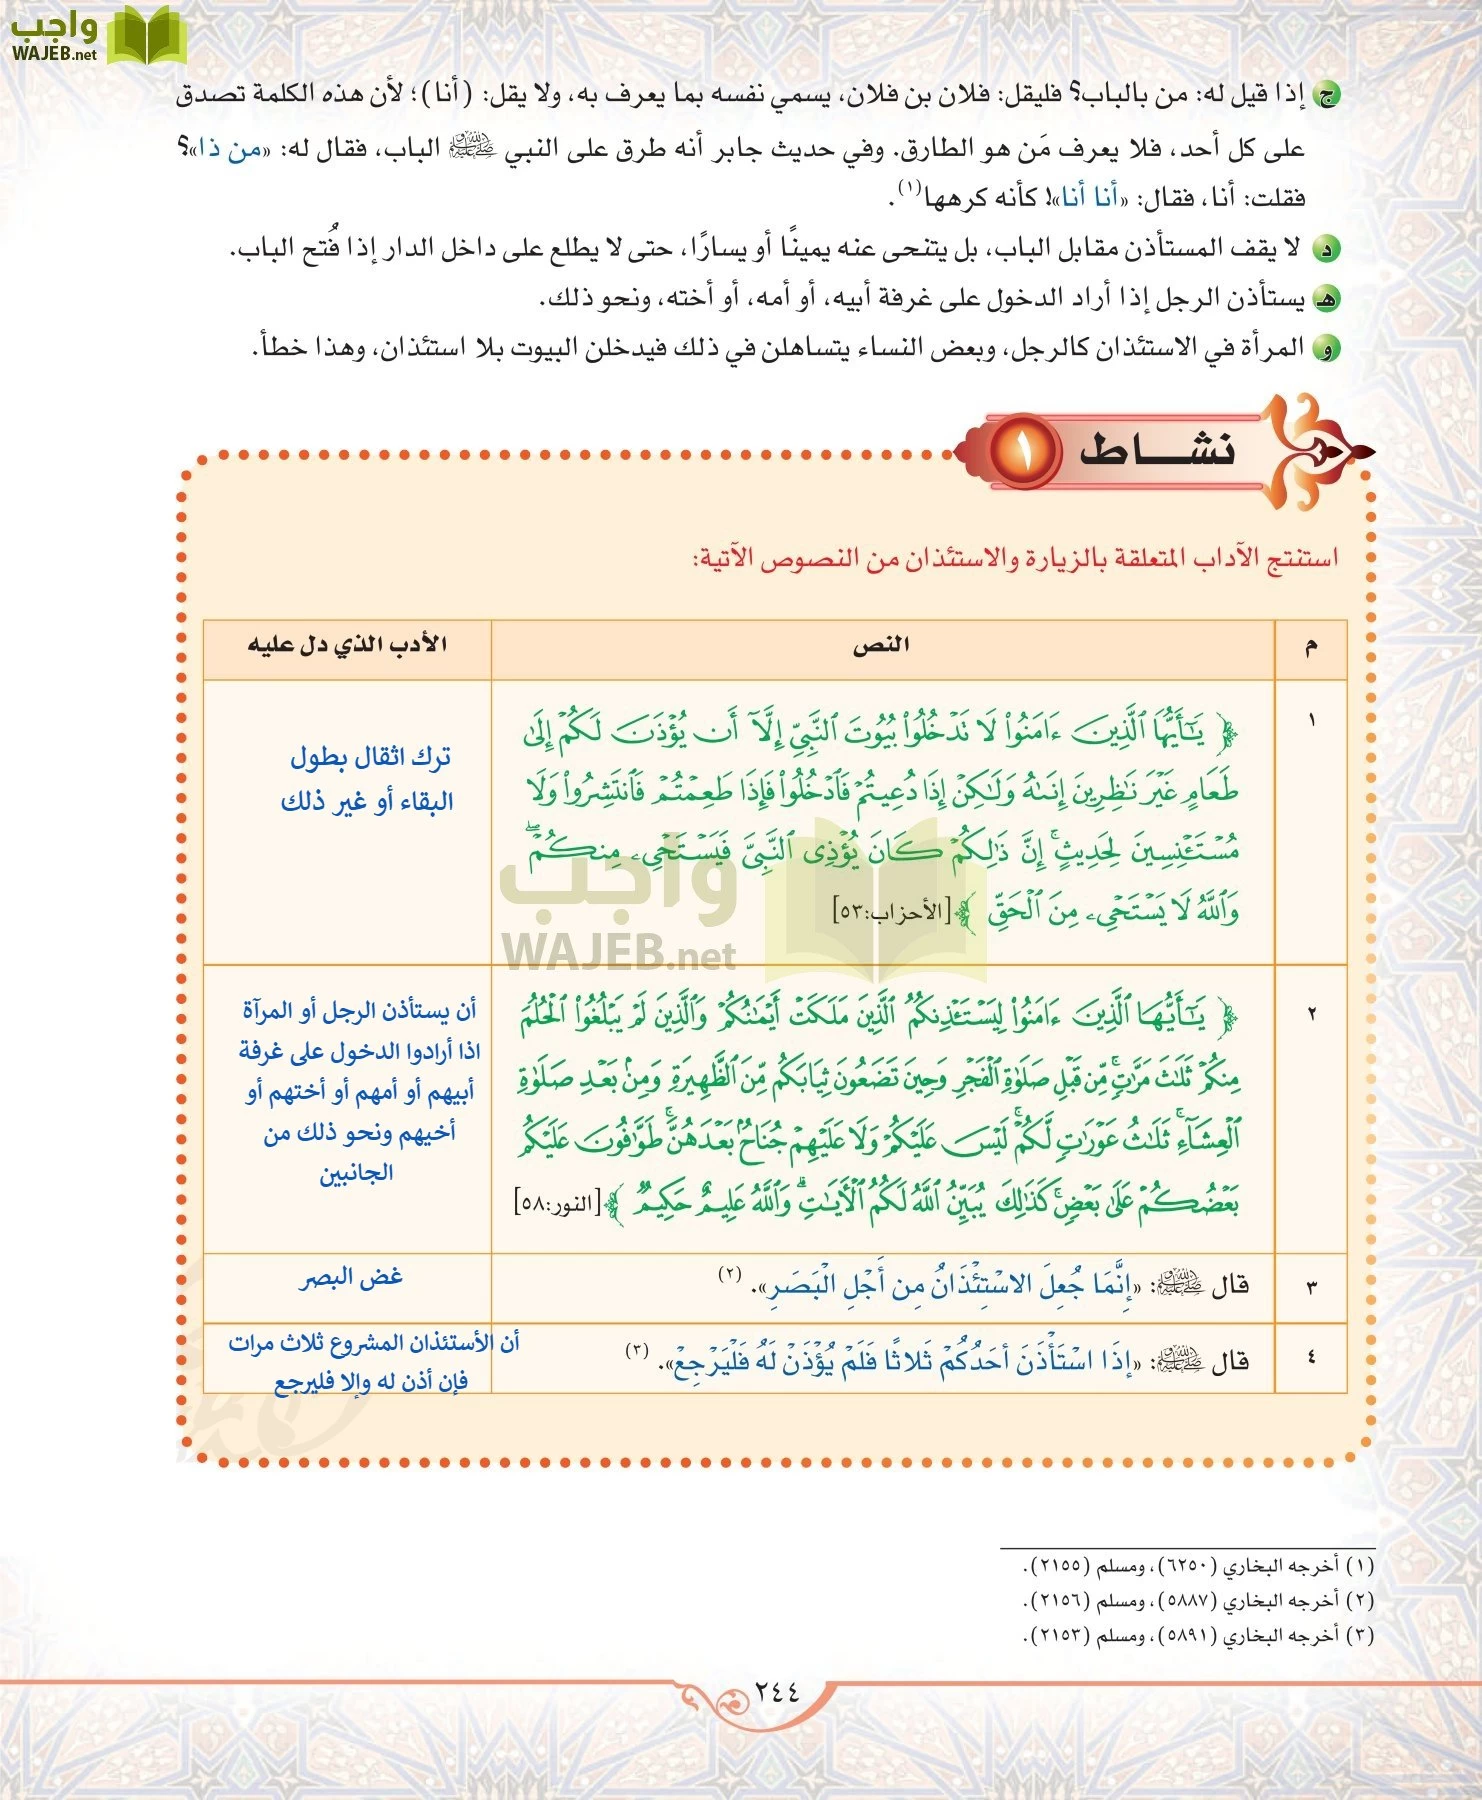 واجب
WAJEB.net
ج إذا قيل له: من بالباب؟ فليقل: فلان بن فلان، يسمي نفسه بما يعرف به، ولا يقل: (أنا)؛ لأن هذه الكلمة تصدق
على كل أحد، فلا يعرف مَن هو الطارق. وفي حديث جابر أنه طرق على النبي ﷺ الباب، فقال له: «من ذا»؟
فقلت: أنا، فقال: «أنا أنا»! كأنه كرهها(١).
د لا يقف المستأذن مقابل الباب، بل يتنحى عنه يمينًا أو يسارًا، حتى لا يطلع على داخل الدار إذا فُتح الباب.
هـ يستأذن الرجل إذا أراد الدخول على غرفة أبيه، أو أمه، أو أخته، ونحو ذلك.
و المرأة في الاستئذان كالرجل، وبعض النساء يتساهلن في ذلك فيدخلن البيوت بلا استئذان، وهذا خطأ.
نشـــاط ١
استنتج الآداب المتعلقة بالزيارة والاستئذان من النصوص الآتية:
م النص الأدب الذي دل عليه
١
﴿ يَٰٓأَيُّهَا ٱلَّذِينَ ءَامَنُوا۟ لَا تَدْخُلُوا۟ بُيُوتَ ٱلنَّبِىِّ إِلَّآ أَن يُؤْذَنَ لَكُمْ إِلَىٰ
طَعَامٍ غَيْرَ نَٰظِرِينَ إِنَىٰهُ وَلَٰكِنْ إِذَا دُعِيتُمْ فَٱدْخُلُوا۟ فَإِذَا طَعِمْتُمْ فَٱنتَشِرُوا۟ وَلَا
مُسْتَـْٔنِسِينَ لِحَدِيثٍ ۚ إِنَّ ذَٰلِكُمْ كَانَ يُؤْذِى ٱلنَّبِىَّ فَيَسْتَحْىِۦ مِنكُمْ ۖ
وَٱللَّهُ لَا يَسْتَحْىِۦ مِنَ ٱلْحَقِّ ﴾ [الأحزاب:٥٣]
ترك اثقال بطول
البقاء أو غير ذلك
واجب
WAJEB.net
٢
﴿ يَٰٓأَيُّهَا ٱلَّذِينَ ءَامَنُوا۟ لِيَسْتَـْٔذِنكُمُ ٱلَّذِينَ مَلَكَتْ أَيْمَٰنُكُمْ وَٱلَّذِينَ لَمْ يَبْلُغُوا۟ ٱلْحُلُمَ
مِنكُمْ ثَلَٰثَ مَرَّٰتٍ ۚ مِّن قَبْلِ صَلَوٰةِ ٱلْفَجْرِ وَحِينَ تَضَعُونَ ثِيَابَكُم مِّنَ ٱلظَّهِيرَةِ وَمِنۢ بَعْدِ صَلَوٰةِ
ٱلْعِشَآءِ ۚ ثَلَٰثُ عَوْرَٰتٍ لَّكُمْ ۚ لَيْسَ عَلَيْكُمْ وَلَا عَلَيْهِمْ جُنَاحٌۢ بَعْدَهُنَّ ۚ طَوَّٰفُونَ عَلَيْكُم
بَعْضُكُمْ عَلَىٰ بَعْضٍ ۚ كَذَٰلِكَ يُبَيِّنُ ٱللَّهُ لَكُمُ ٱلْءَايَٰتِ ۗ وَٱللَّهُ عَلِيمٌ حَكِيمٌ ﴾ [النور:٥٨]
أن يستأذن الرجل أو المرآة
اذا أرادوا الدخول على غرفة
أبيهم أو أمهم أو أختهم أو
أخيهم ونحو ذلك من
الجانبين
٣
قال ﷺ: «إِنَّمَا جُعِلَ الاسْتِئْذَانُ مِن أَجْلِ الْبَصَرِ». (٢)
غض البصر
٤
قال ﷺ: «إِذَا اسْتَأْذَنَ أحَدُكُمْ ثَلاثًا فَلَمْ يُؤْذَنْ لَهُ فَلْيَرْجِعْ». (٣)
أن الأستئذان المشروع ثلاث مرات
فإن أذن له وإلا فليرجع
(١) أخرجه البخاري (٦٢٥٠)، ومسلم (٢١٥٥).
(٢) أخرجه البخاري (٥٨٨٧)، ومسلم (٢١٥٦).
(٣) أخرجه البخاري (٥٨٩١)، ومسلم (٢١٥٣).
٢٤٤